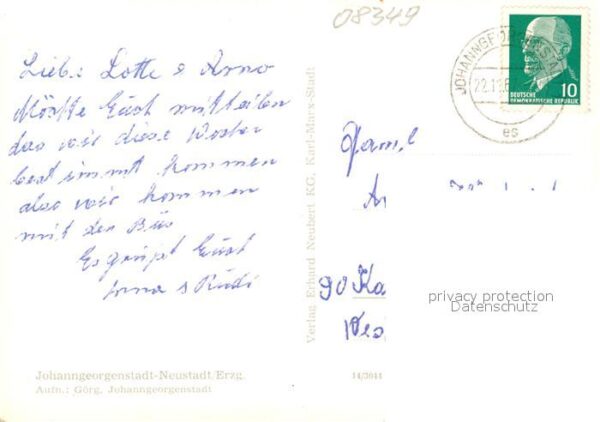 08349
Lieb: Lotte & Arno
Möchte Euch mitteilen
das wir diese Woche
bestimmt kommen
also wir kommen
mit den Bus
Es grüßt Euch
Anna & Rudi
Johanngeorgenstadt-Neustadt/Erzg.
Aufn.: Görg, Johanngeorgenstadt
Verlag Erhard Neubert KG, Karl-Marx-Stadt
14/3044
JOHANNGEORGENSTADT
22.11.6
es
10
DEUTSCHE
DEMOKRATISCHE REPUBLIK
Faml
90 Ka
privacy protection
Datenschutz